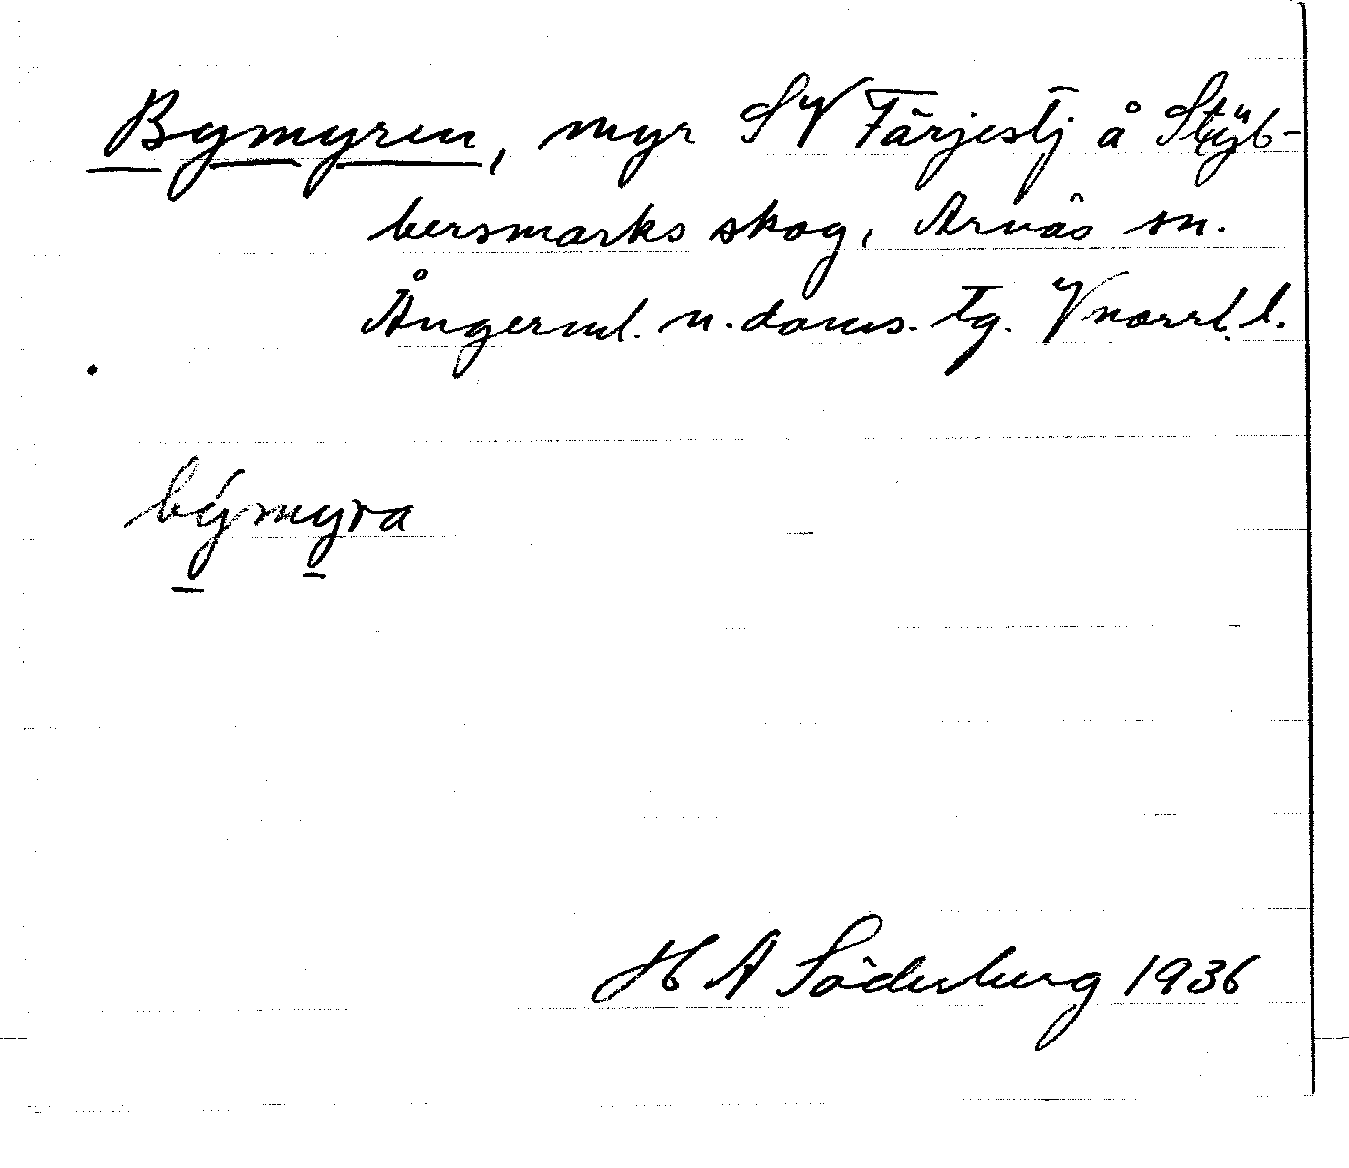 Bymyren, myr SV Färjestj å Stÿb-
bersmarks skog, Arnäs sn.
Ångerml. n. doms. tg. Vnorrl. l.
býmyra
H A Söderberg 1936